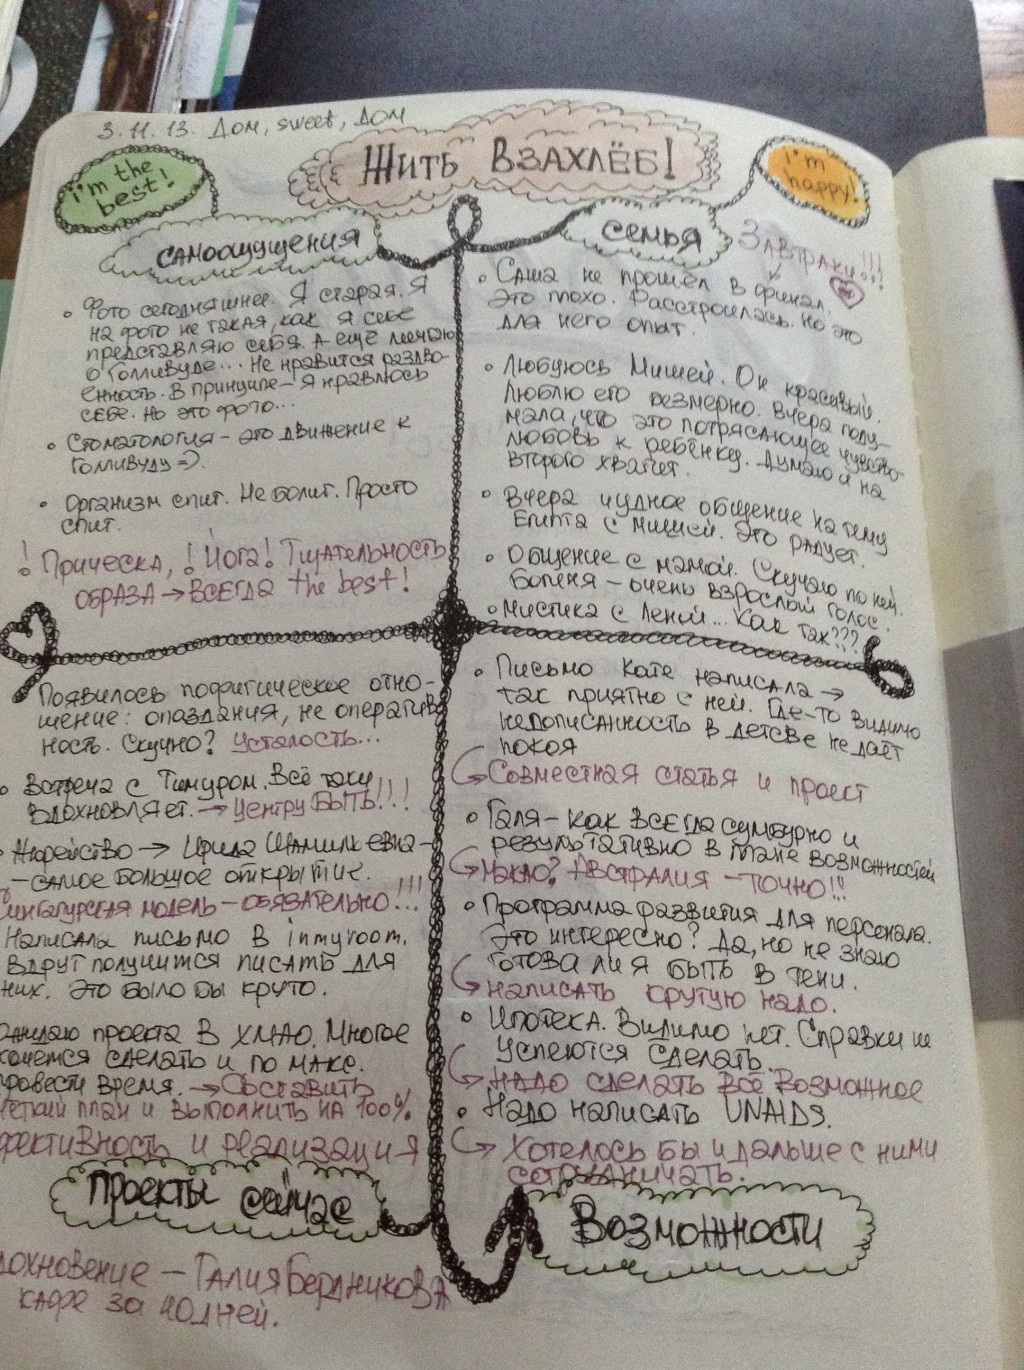 3.11.13. Дом, sweet, Дом
Жить взахлёб!
i'm the
best!
i'm
happy!
самоощущения
семья
Завтраки!!!
• Фото сегодняшнее. Я старая. Я
на фото не такая, как я себе
представляю себя. А ещё мечтаю
о Голливуде... Не нравится раздво-
енность. В принципе – я нравлюсь
себе. Но это фото...
• Стоматология – это движение к
Голливуду =).
• Организм спит. Не болит. Просто
спит.
! Прическа, ! Йога! Тщательность
образа → всегда the best!
• Саша не прошёл в финал.
Это плохо. Расстроилась. Но это
для него опыт.
• Любуюсь Мишей. Он красивый.
Люблю его безмерно. Вчера поду-
мала, что это потрясающее чувство-
любовь к ребёнку. Думаю и на
второго хватит.
• Вчера чудное общение на тему
Египта с Мишей. Это радует.
• Общение с мамой. Скучаю по ней.
Боженя – очень взрослый голос.
• Мистика с Леной... Как так???
Появилось пофигическое отно-
шение: опоздания, не оператив
ность. Скучно? Усталость...
• Встреча с Тимуром. Всё таки
вдохновляет. → Центру быть!!!
Ирида Шамильевна-
– самое большое открытие.
Сингапурская модель – обязательно!!!
Написала письмо в inmyroom.
Вдруг получится писать для
них. Это было бы круто.
Ожидаю проекта в ХМАО. Многое
хочется сделать и по макс.
провести время. → Составить
чёткий план и выполнить на 100%
эффективность и реализация
Проекты сейчас
Вдохновение – Галия Бердникова
кафе за 40 дней.
• Письмо Кате написала →
так приятно с ней. Где-то видимо
недописанность в детсве не даёт
покоя
↳ Совместная статья и проект
• Галя – как всегда сумбурно и
результативно в плане возможностей
↳ Австралия – точно!!!
• Программа развития для персонала.
Это интересно? Да, но не знаю
готова ли я быть в тени.
↳ Написать крутую надо.
• Ипотека. Видимо нет. Справки не
успеются сделать.
↳ Надо сделать всё возможное
• Надо написать UNAIDS.
↳ Хотелось бы и дальше с ними
сотрудничать.
Возможности